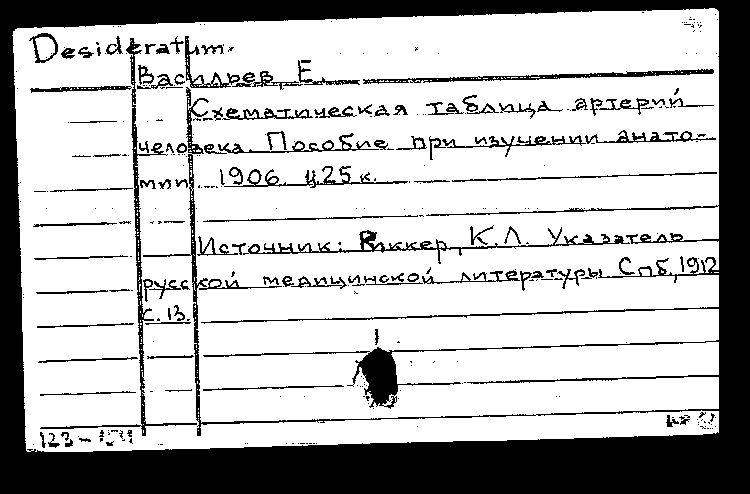 Desideratum.
Васильев, Е.
Схематическая таблица артерий
человека. Пособие при изучении анато-
мии. 1906. ц.25 к.
Источник: Риккер, К.Л. Указатель
русской медицинской литературы Спб, 1912
с. 13.
123 –